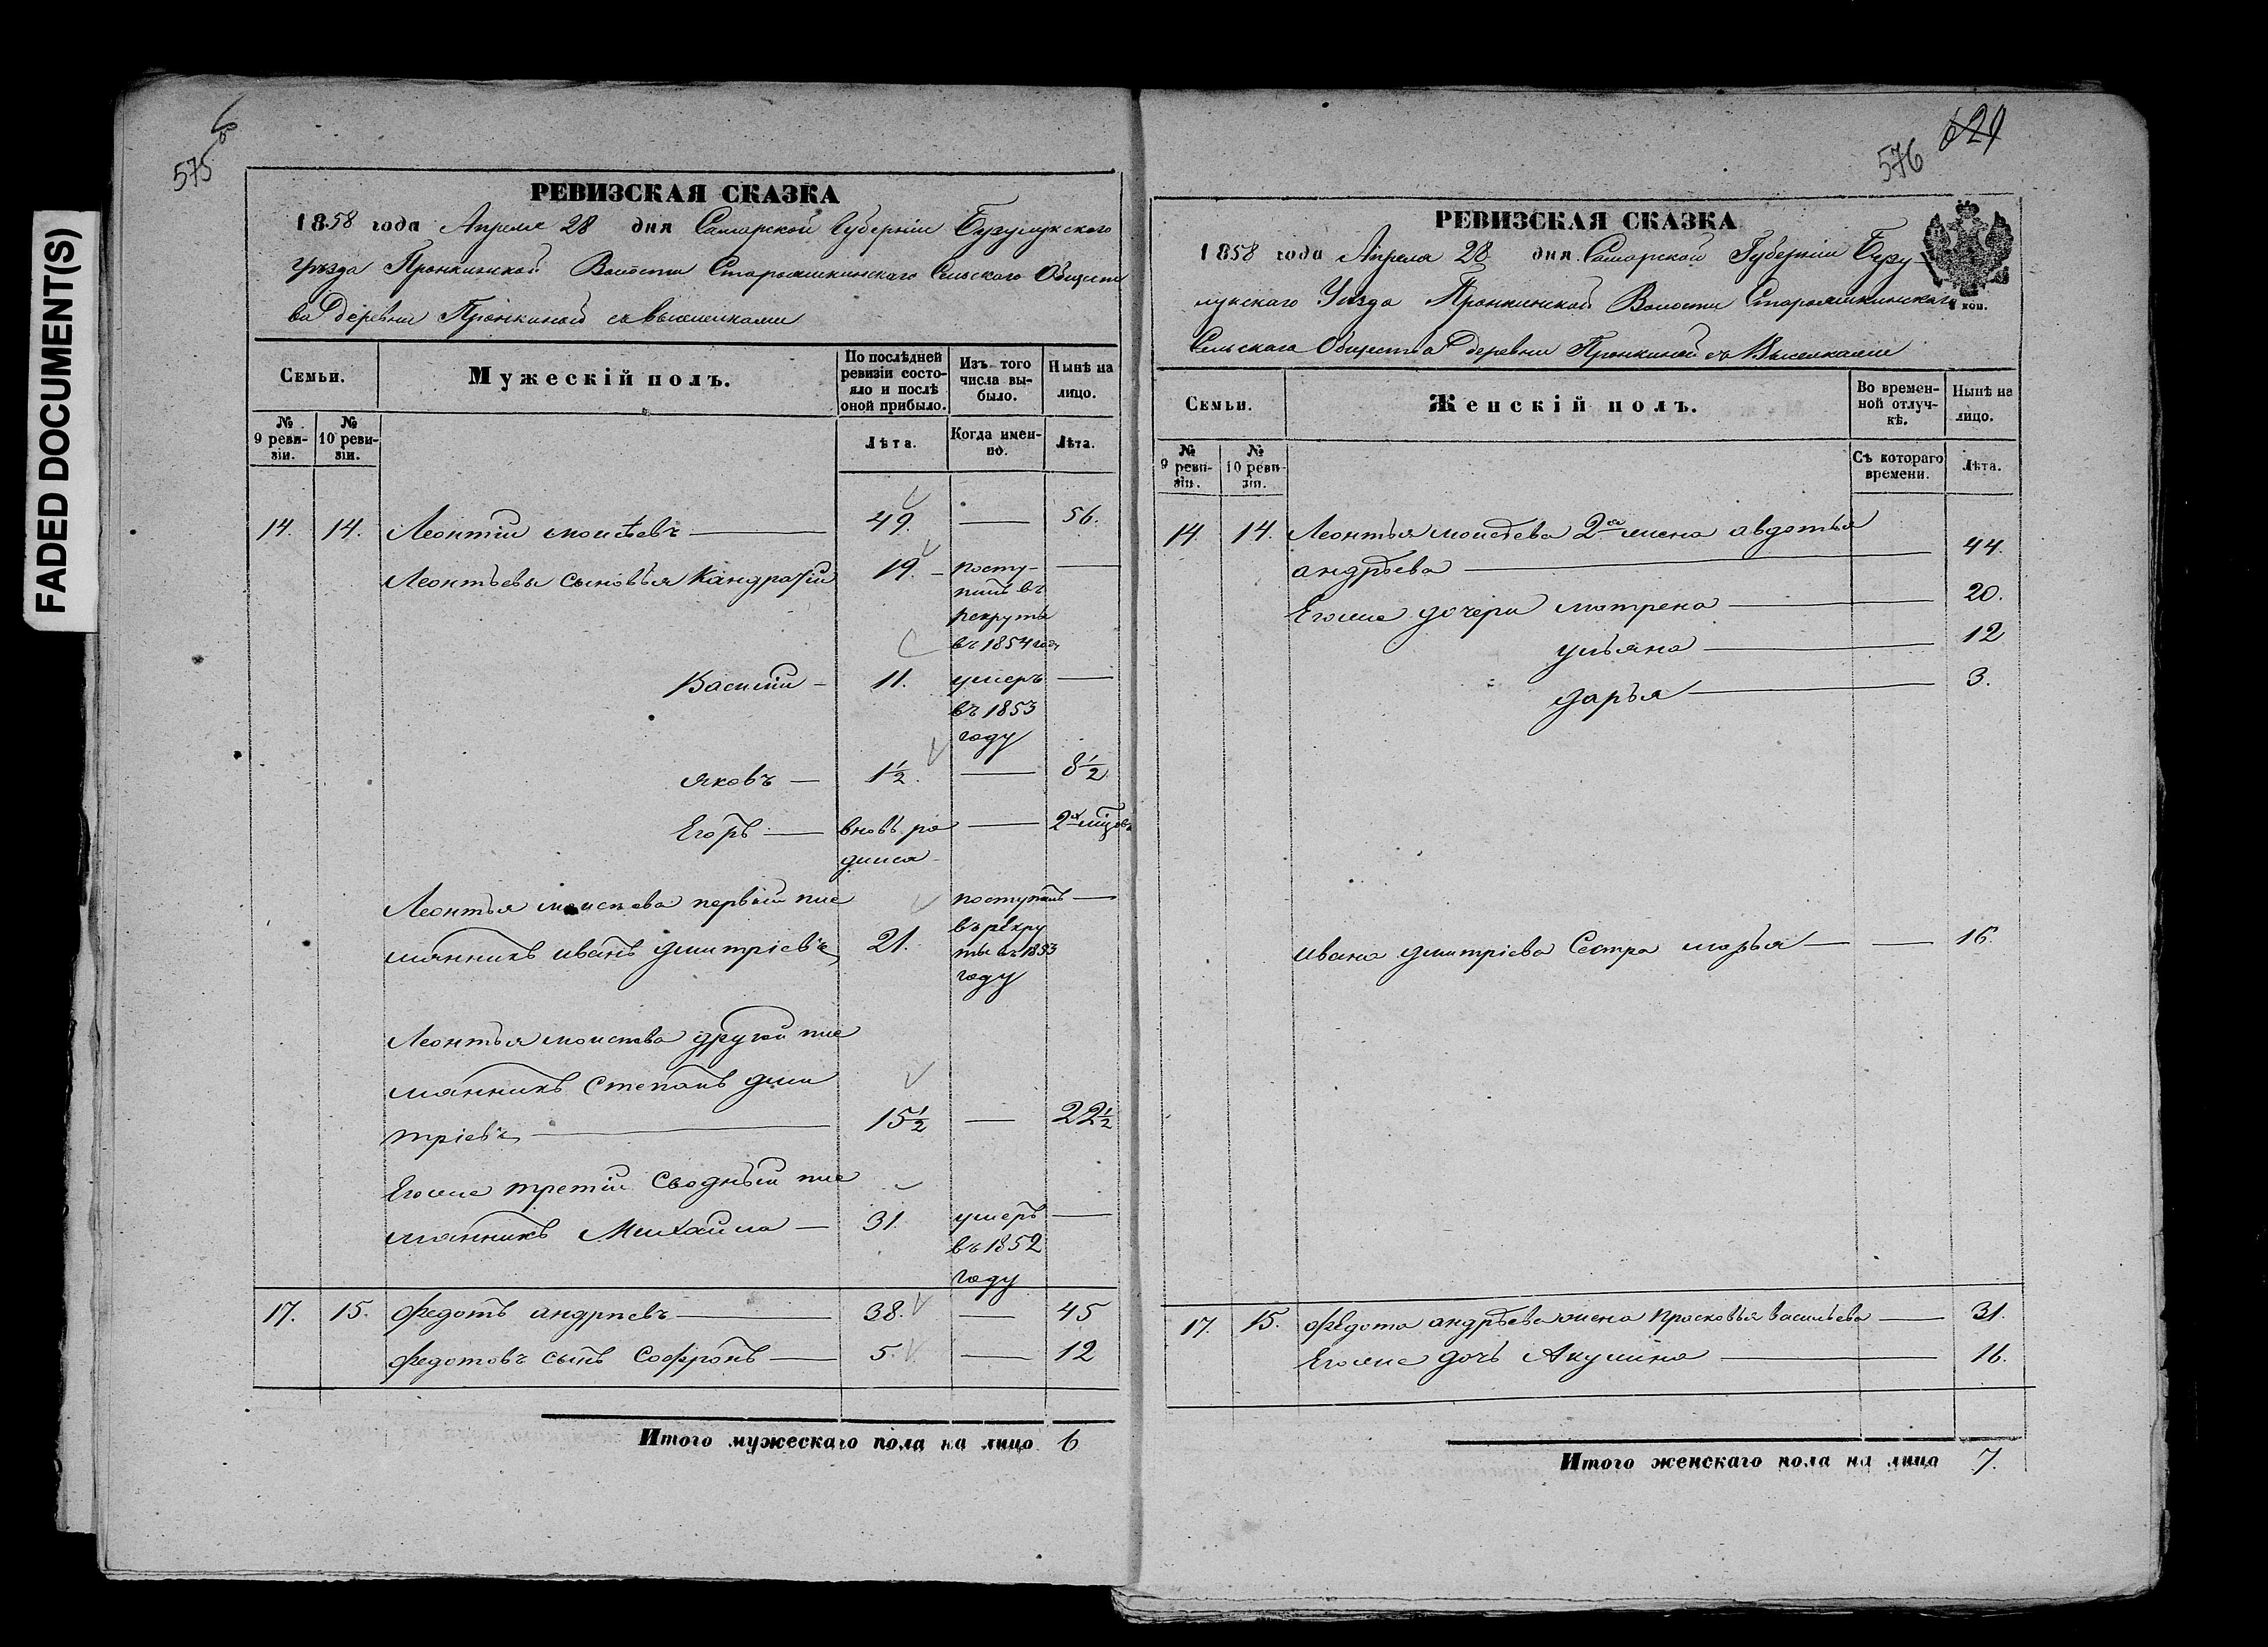 FADED DOCUMENT(S)
575 об
РЕВИЗСКАЯ СКАЗКА
1858 года Апреля 28 дня Самарской Губерніи Бузулукскаго
Уѣзда Пронкинской Волости Староашкинскаго Сельскаго Общест
ва деревни Пронкиной съ выселками
Семьи. Мужескій полъ. По послѣдней ревизіи состояло и послѣ оной прибыло. Изъ того числа выбыло. Нынѣ на лицо.
№ 9 ревизіи. № 10 ревизіи. Лѣта. Когда именно. Лѣта.
14. 14. Леонтій моисѣевъ 49. — 56.
Леонтьевы сыновья Кандратій 19. посту-
пилъ въ
рекруты
въ 1854 году
Василій — 11. умеръ —
въ 1853
году
яковъ — 1½. — 8½
Егоръ — вновь ро — 2хъ мѣсяцовъ
дился
Леонтья моисѣева первый пле поступилъ —
мянникъ иванъ дмитріевъ 21. въ рекру
ты въ 1853
году
Леонтья моисѣева другой пле
мянникъ Степанъ дми
тріевъ 15½ — 22½
Егоже третій Сводный пле
мянникъ Михайла — 31. умеръ —
въ 1852
году
17. 15. Федотъ андрѣевъ 38. — 45
Федотовъ сынъ Софронъ 5. — 12
Итого мужескаго пола на лицо 6
576 621
РЕВИЗСКАЯ СКАЗКА
1858 года Апреля 28 дня Самарской Губерніи Бузу-
лукскаго Уѣзда Пронкинской Волости Староашкинскаго
коп.
Сельскаго Общества деревни Пронкиной съ Выселками
Семьи. Женскій полъ. Во временной отлучкѣ. Нынѣ на лицо.
№ 9 ревизіи. № 10 ревизіи. Съ котораго времени. Лѣта.
14. 14. Леонтья моисѣева 2я жена авдотья
андрѣева 44.
Егоже дочери матрена 20.
ульяна 12
дарья 3.
ивана дмитріева Сестра марья — — 16.
17. 15. Федота андрѣева жена прасковья васильева 31.
Егоже дочь Акулина 16.
Итого женскаго пола на лицо 7.